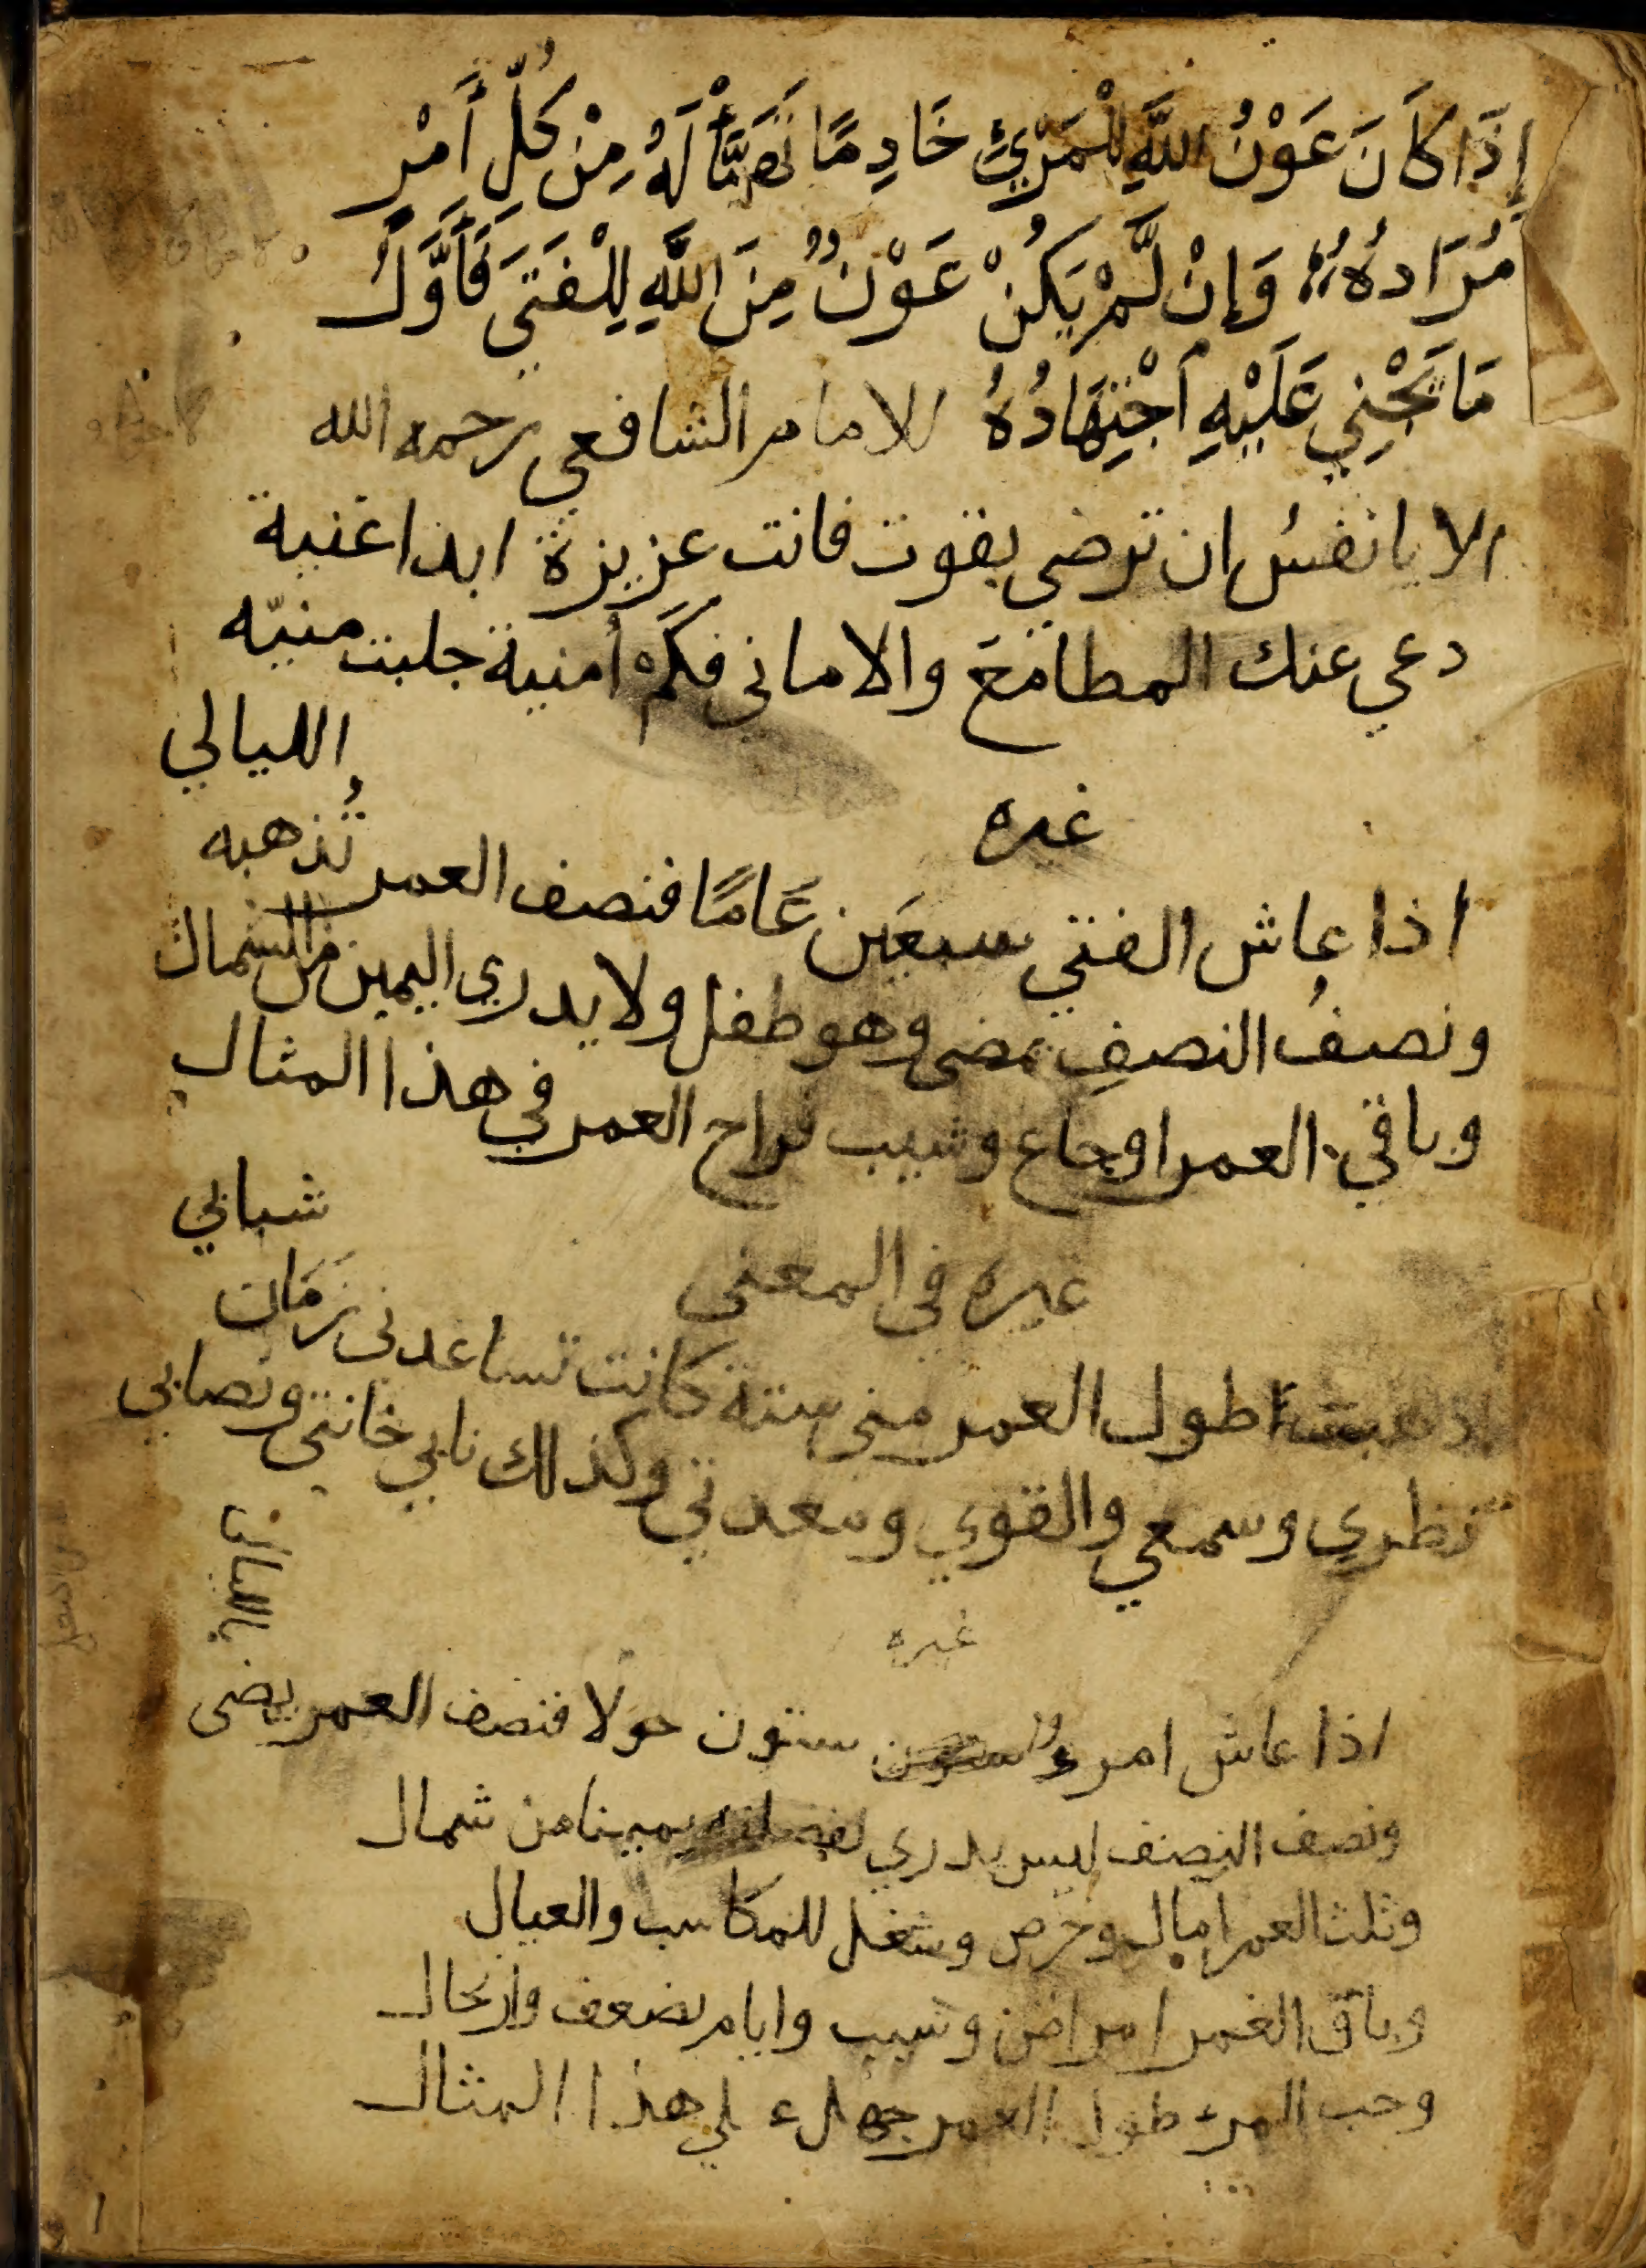 إِذَا كَانَ عَوْنُ اللَّهِ لِلْمَرْئِ خَادِمًا تَهَيَّأْ لَهُ مِنْ كُلِّ أَمْرٍ
مُرَادُهُ وَإِنْ لَّمْ يَكُنْ عَوْنٌ مِنَ اللَّهِ لِلْفَتَى فَأَوَّلُ
مَا يَجْنِي عَلَيْهِ اجْتِهَادُهُ للامام الشافعي رحمه الله
الا يا نفسُ ان ترضي بقوت فانت عزيزة ابدا غنية
دعي عنك المطامعَ والاماني فكَمْ أمنية جلبت منيّه
غيره
اذا عاش الفتي سبعَين عَامًا فنصف العمر تُذهبه الليالي
ونصفُ النصفِ يمضى وهو طفل ولا يدري اليمين من الشمال
وباقي العمر اوجاع وشيب فراح العمر في هذا المثال
غيره في المعنى
اطول العمر منى ستة كانت تساعدنى زمَان شبابي
نظري وسمعي والقوي ومعدتي وكذلك نابي خانتى ونصابى
غيره
اذا عاش امرءٌ ستون حولا فنصف العمر يمضى بالليالي
ونصف النصف ليس يدري لغفلته يمينا من شمال
وثلث العمر امال وحرص وشغل للمكاسب والعيال
وباقى العمر امراض وشيب وايام بضعف وارتحال
وحب المرء طول العمر جهل علي هذا المثال
١